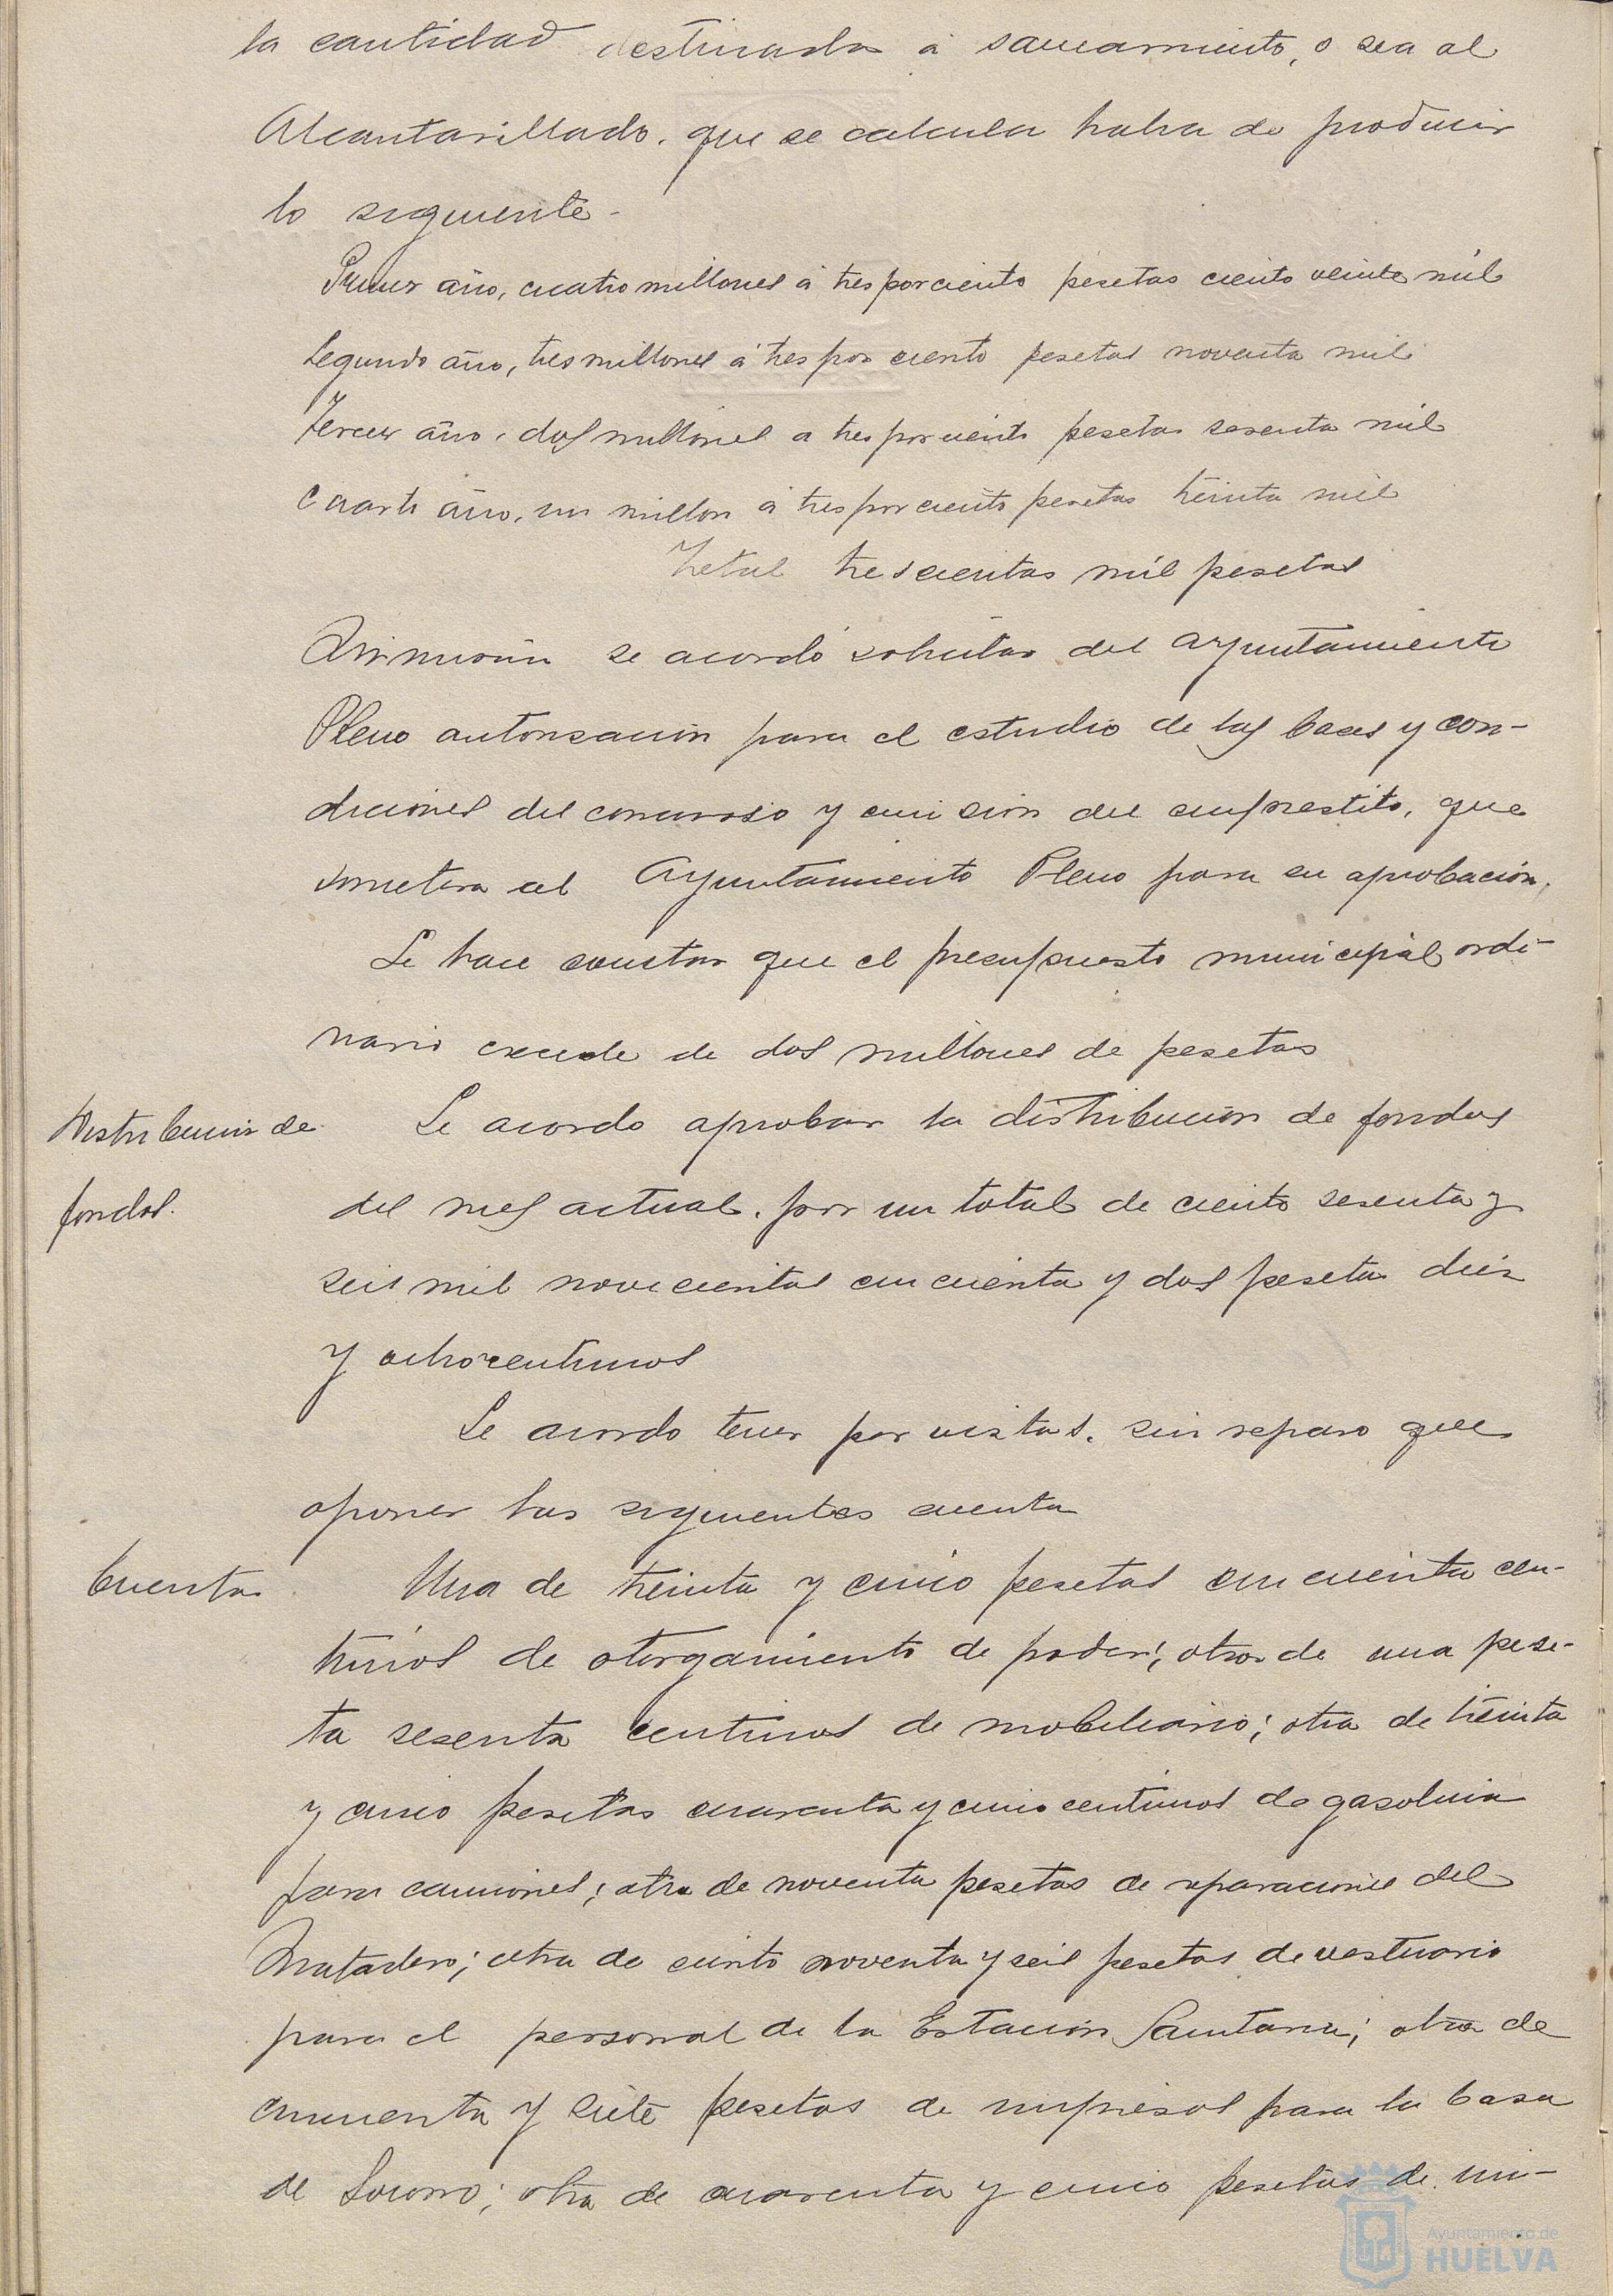 la cantidad destinada a saneamiento, o sea al
Alcantarillado. que se calcula habra de producir
lo siguiente-
Primer año, cuatro millones á tres por ciento pesetas ciento veinte mil
Segundo año, tres millones á tres por ciento pesetas noventa mil
Tercer año, dos millones a tres por ciento pesetas sesenta mil
Cuarto año, un millon á tres por ciento pesetas treinta mil
Total trescientas mil pesetas
Asimismo se acordó solicitar del Ayuntamiento
Pleno autorización para el estudio de las bases y con-
diciones del concurso y emisión del emprestito, que
sometera al Ayuntamiento Pleno para su aprobación.
Se hace constar que el presupuesto municipal ordi-
nario excede de dos millones de pesetas
Distribución de fondos.
Se acordo aprobar la distribución de fondos
del mes actual. por un total de ciento sesenta y
seis mil novecientas cincuenta y dos pesetas diez
y ocho centimos
Se acordo tener por vistas. sin reparo que
oponer las siguientes cuenta
Cuentas
Una de treinta y cinco pesetas cincuenta cen-
timos de otorgamiento de poder; otra de una pese-
ta sesenta centimos de mobiliario; otra de treinta
y cinco pesetas cuarenta y cinco centimos de gasolina
para camiones; otra de noventa pesetas de reparaciones del
Matadero; otra de ciento noventa y seis pesetas de vestuario
para el personal de la Estación Sanitaria; otra de
cincuenta y siete pesetas de impresos para la Casa
de Socorro; otra de cuarenta y cinco pesetas de im-
Ayuntamiento de
HUELVA